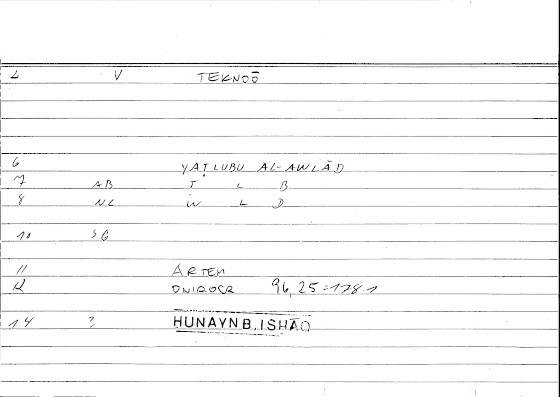 2 V TEKNOŌ
6 YAṬLUBU AL-AWLĀD
7 AB Ṭ L B
8 NC W L D
10 SG
11 ARTEM
12 ONIROCR 96,25=1781
14 ? HUNAYN B. ISHĀQ